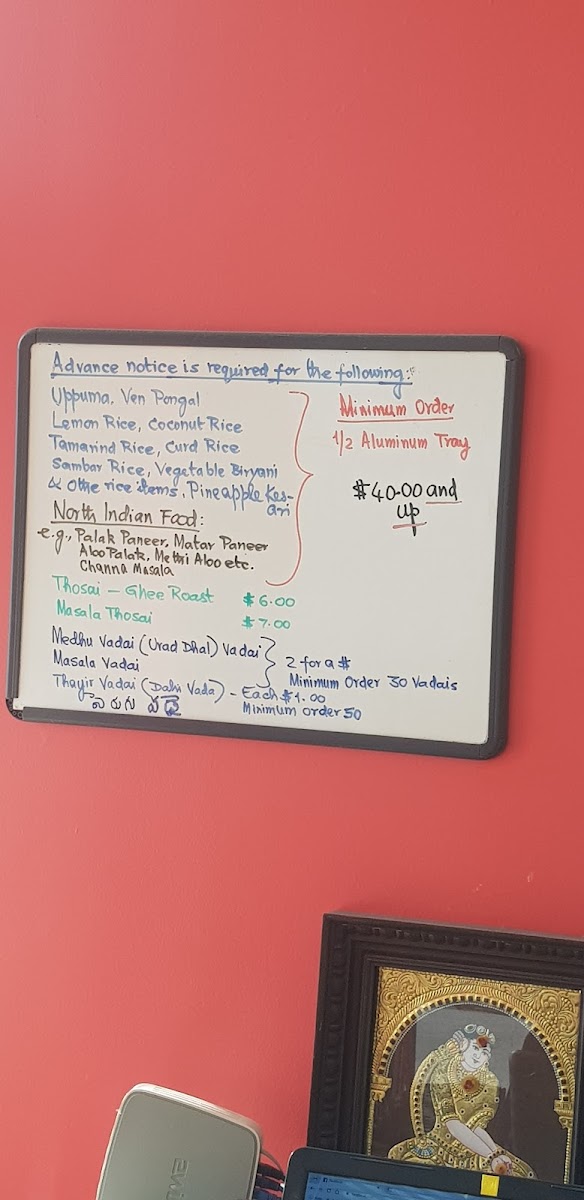 Advance notice is required for the following:
Uppuma, Ven Pongal
Lemon Rice, Coconut Rice
Tamarind Rice, Curd Rice
Sambar Rice, Vegetable Biryani
& Other rice items, Pineapple Kes-
ari
Minimum Order
1/2 Aluminum Tray
$40.00 and
up
North Indian Food:
e.g., Palak Paneer, Matar Paneer
Aloo Palak, Methi Aloo etc.
Channa Masala
Thosai - Ghee Roast $6.00
Masala Thosai $7.00
Medhu Vadai (Urad Dhal) Vadai
Masala Vadai
2 for a $
Minimum Order 30 Vadais
Thayir Vadai (Dahi Vada) - Each $1.00
Minimum order 50